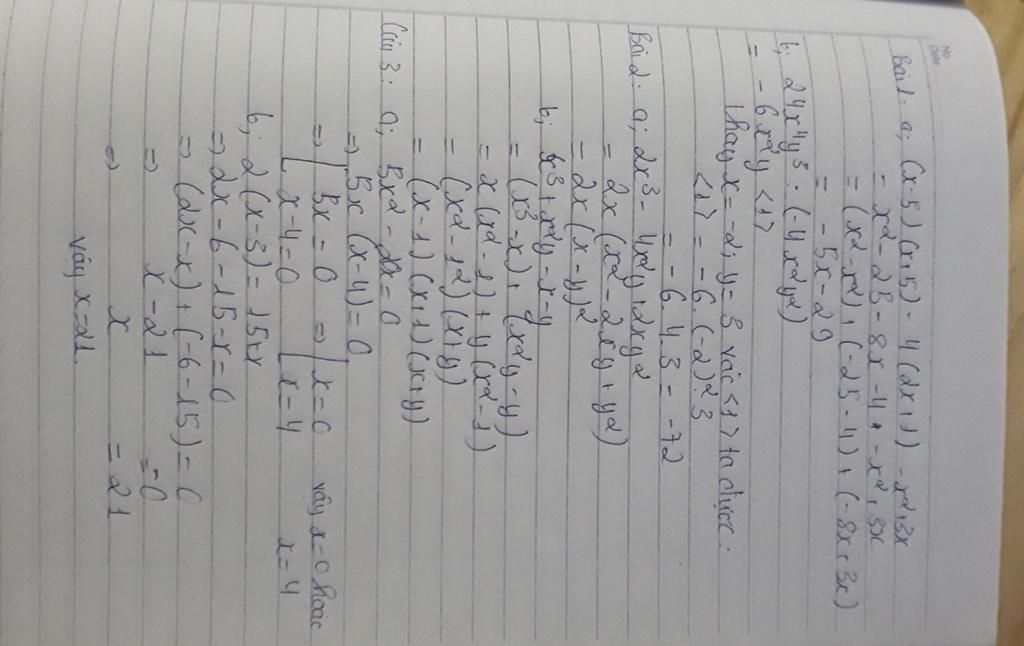 Bài 1: a; (x-5)(x+5) - 4(2x+1) - x²+3x
= x² - 25 - 8x - 4 + - x² + 3x
= (x² - x²) + (-25 - 4) + (-8x + 3x)
= - 5x - 29
b; 24x⁴y³ : (-4x²y²)
= - 6x²y <1>
Thay x = -2; y = 3 vào <1> ta được:
<1> = -6.(-2)².3
= -6.4.3 = -72
Bài 2: a; 2x³ - 4x²y + 2xy²
= 2x(x² - 2xy + y²)
= 2x(x - y)²
b; x³ + x²y - x - y
= (x³ - x) + (x²y - y)
= x(x² - 1) + y(x² - 1)
= (x² - 1²)(x+y)
= (x-1)(x+1)(x+y)
Câu 3: a; 5x² - 20x = 0
=> 5x(x-4) = 0
=> 5x = 0 => x = 0 vậy x = 0 hoặc
x - 4 = 0 x = 4 x = 4
b; 2(x-3) = 15+x
=> 2x - 6 - 15 - x = 0
=> (2x - x) + (-6 - 15) = 0
=> x - 21 = 0
=> x = 21
vậy x = 21.